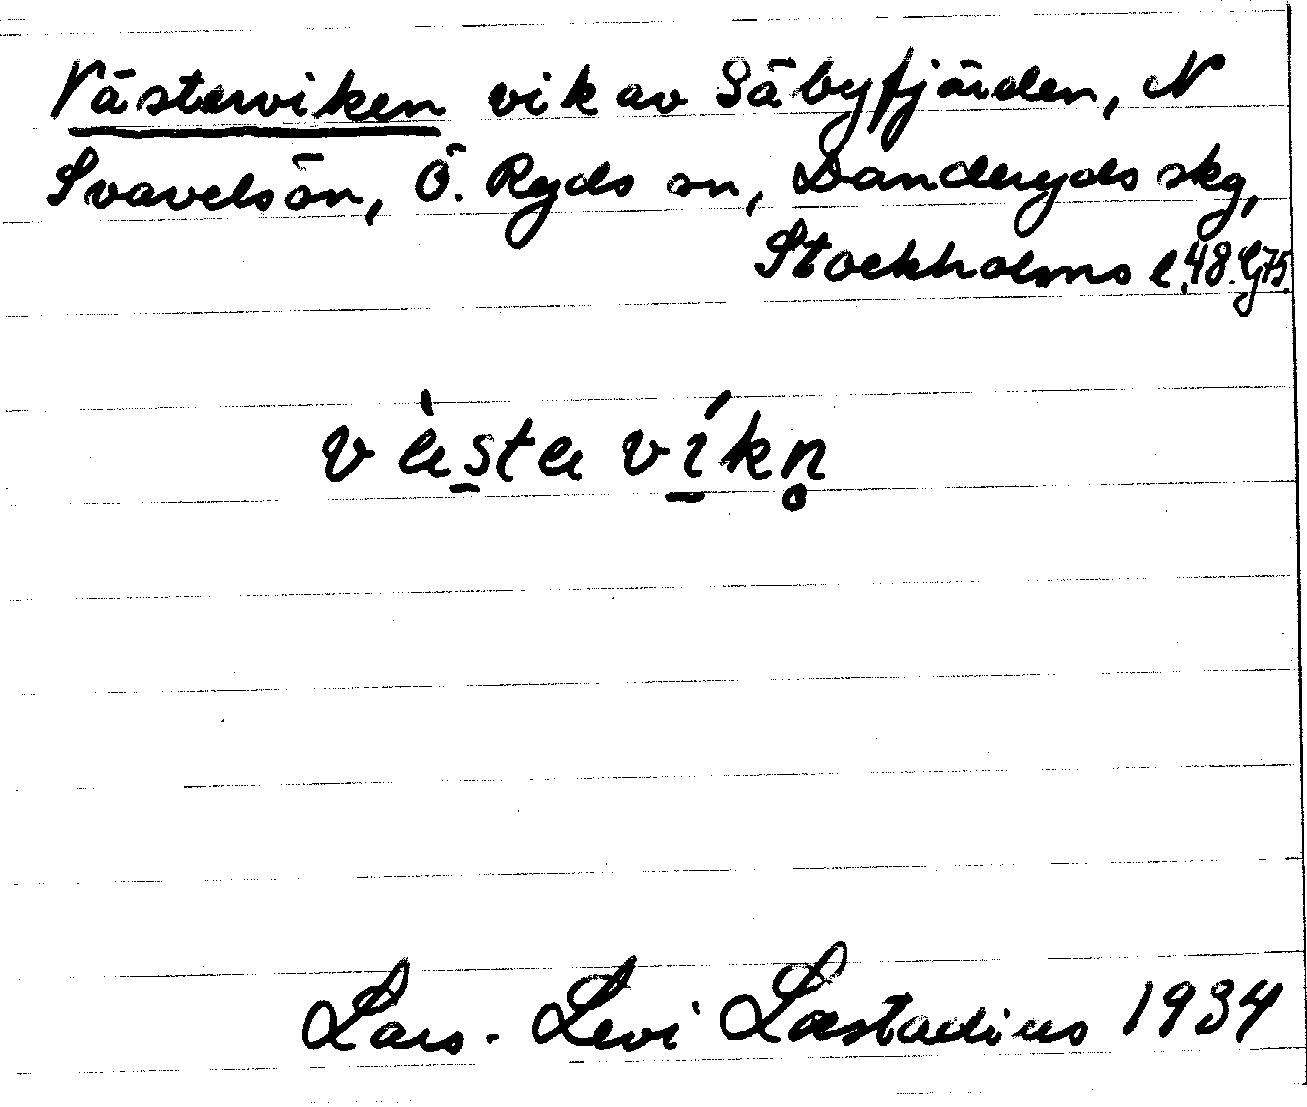 Västerviken vik av Säbyfjärden, N
Svavelsön, Ö. Ryds sn, Danderyds skg,
Stockholms l. 48. G75.
vàsta víkn̥
Lars-Levi Læstadius 1934